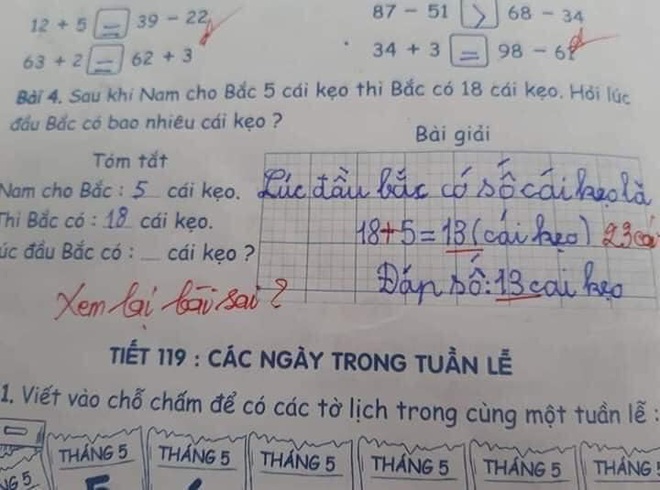 12 + 5 = 39 - 22
87 - 51 > 68 - 34
63 + 2 = 62 + 3
34 + 3 = 98 - 61
Bài 4. Sau khi Nam cho Bắc 5 cái kẹo thì Bắc có 18 cái kẹo. Hỏi lúc
đầu Bắc có bao nhiêu cái kẹo ?
Bài giải
Tóm tắt
Nam cho Bắc : 5 cái kẹo.
Lúc đầu bắc có số cái kẹo là
Thì Bắc có : 18 cái kẹo.
18+5=13 (cái kẹo) 23 cái
úc đầu Bắc có : __ cái kẹo ?
Đáp số: 13 cai kẹo
Xem lại bài sai ?
TIẾT 119 : CÁC NGÀY TRONG TUẦN LỄ
1. Viết vào chỗ chấm để có các tờ lịch trong cùng một tuần lễ :
THÁNG 5 THÁNG 5 THÁNG 5 THÁNG 5 THÁNG 5 THÁNG
NG 5